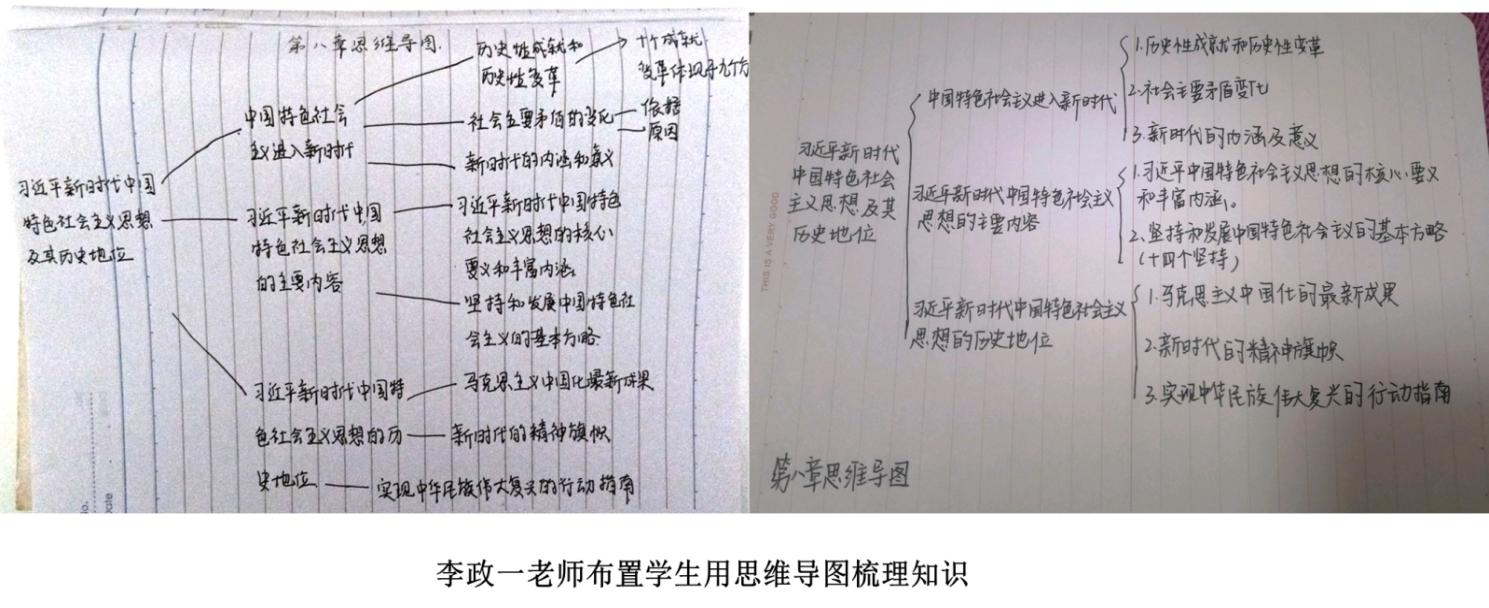 第八章思维导图.
历史性成就和
历史性变革
十个成就
变革体现于九个方
中国特色社会
主义进入新时代
社会主要矛盾的变化
依据
原因
新时代的内涵和意义
习近平新时代中国
特色社会主义思想
及其历史地位
习近平新时代中国
特色社会主义思想
的主要内容
习近平新时代中国特色
社会主义思想的核心
要义和丰富内涵
坚持和发展中国特色社
会主义的基本方略
习近平新时代中国特
色社会主义思想的历
史地位
马克思主义中国化最新成果
新时代的精神旗帜
实现中华民族伟大复兴的行动指南
No.
Date
习近平新时代
中国特色社会
主义思想及其
历史地位
中国特色社会主义进入新时代
1.历史性成就和历史性变革
2.社会主要矛盾变化
3.新时代的内涵及意义
习近平新时代中国特色社会主义
思想的主要内容
1.习近平中国特色社会主义思想的核心要义
和丰富内涵。
2.坚持和发展中国特色社会主义的基本方略
(十四个坚持)
习近平新时代中国特色社会主义
思想的历史地位
1.马克思主义中国化的最新成果
2.新时代的精神旗帜
3.实现中华民族伟大复兴的行动指南
THIS IS A VERY GOOD
第八章思维导图
李政一老师布置学生用思维导图梳理知识